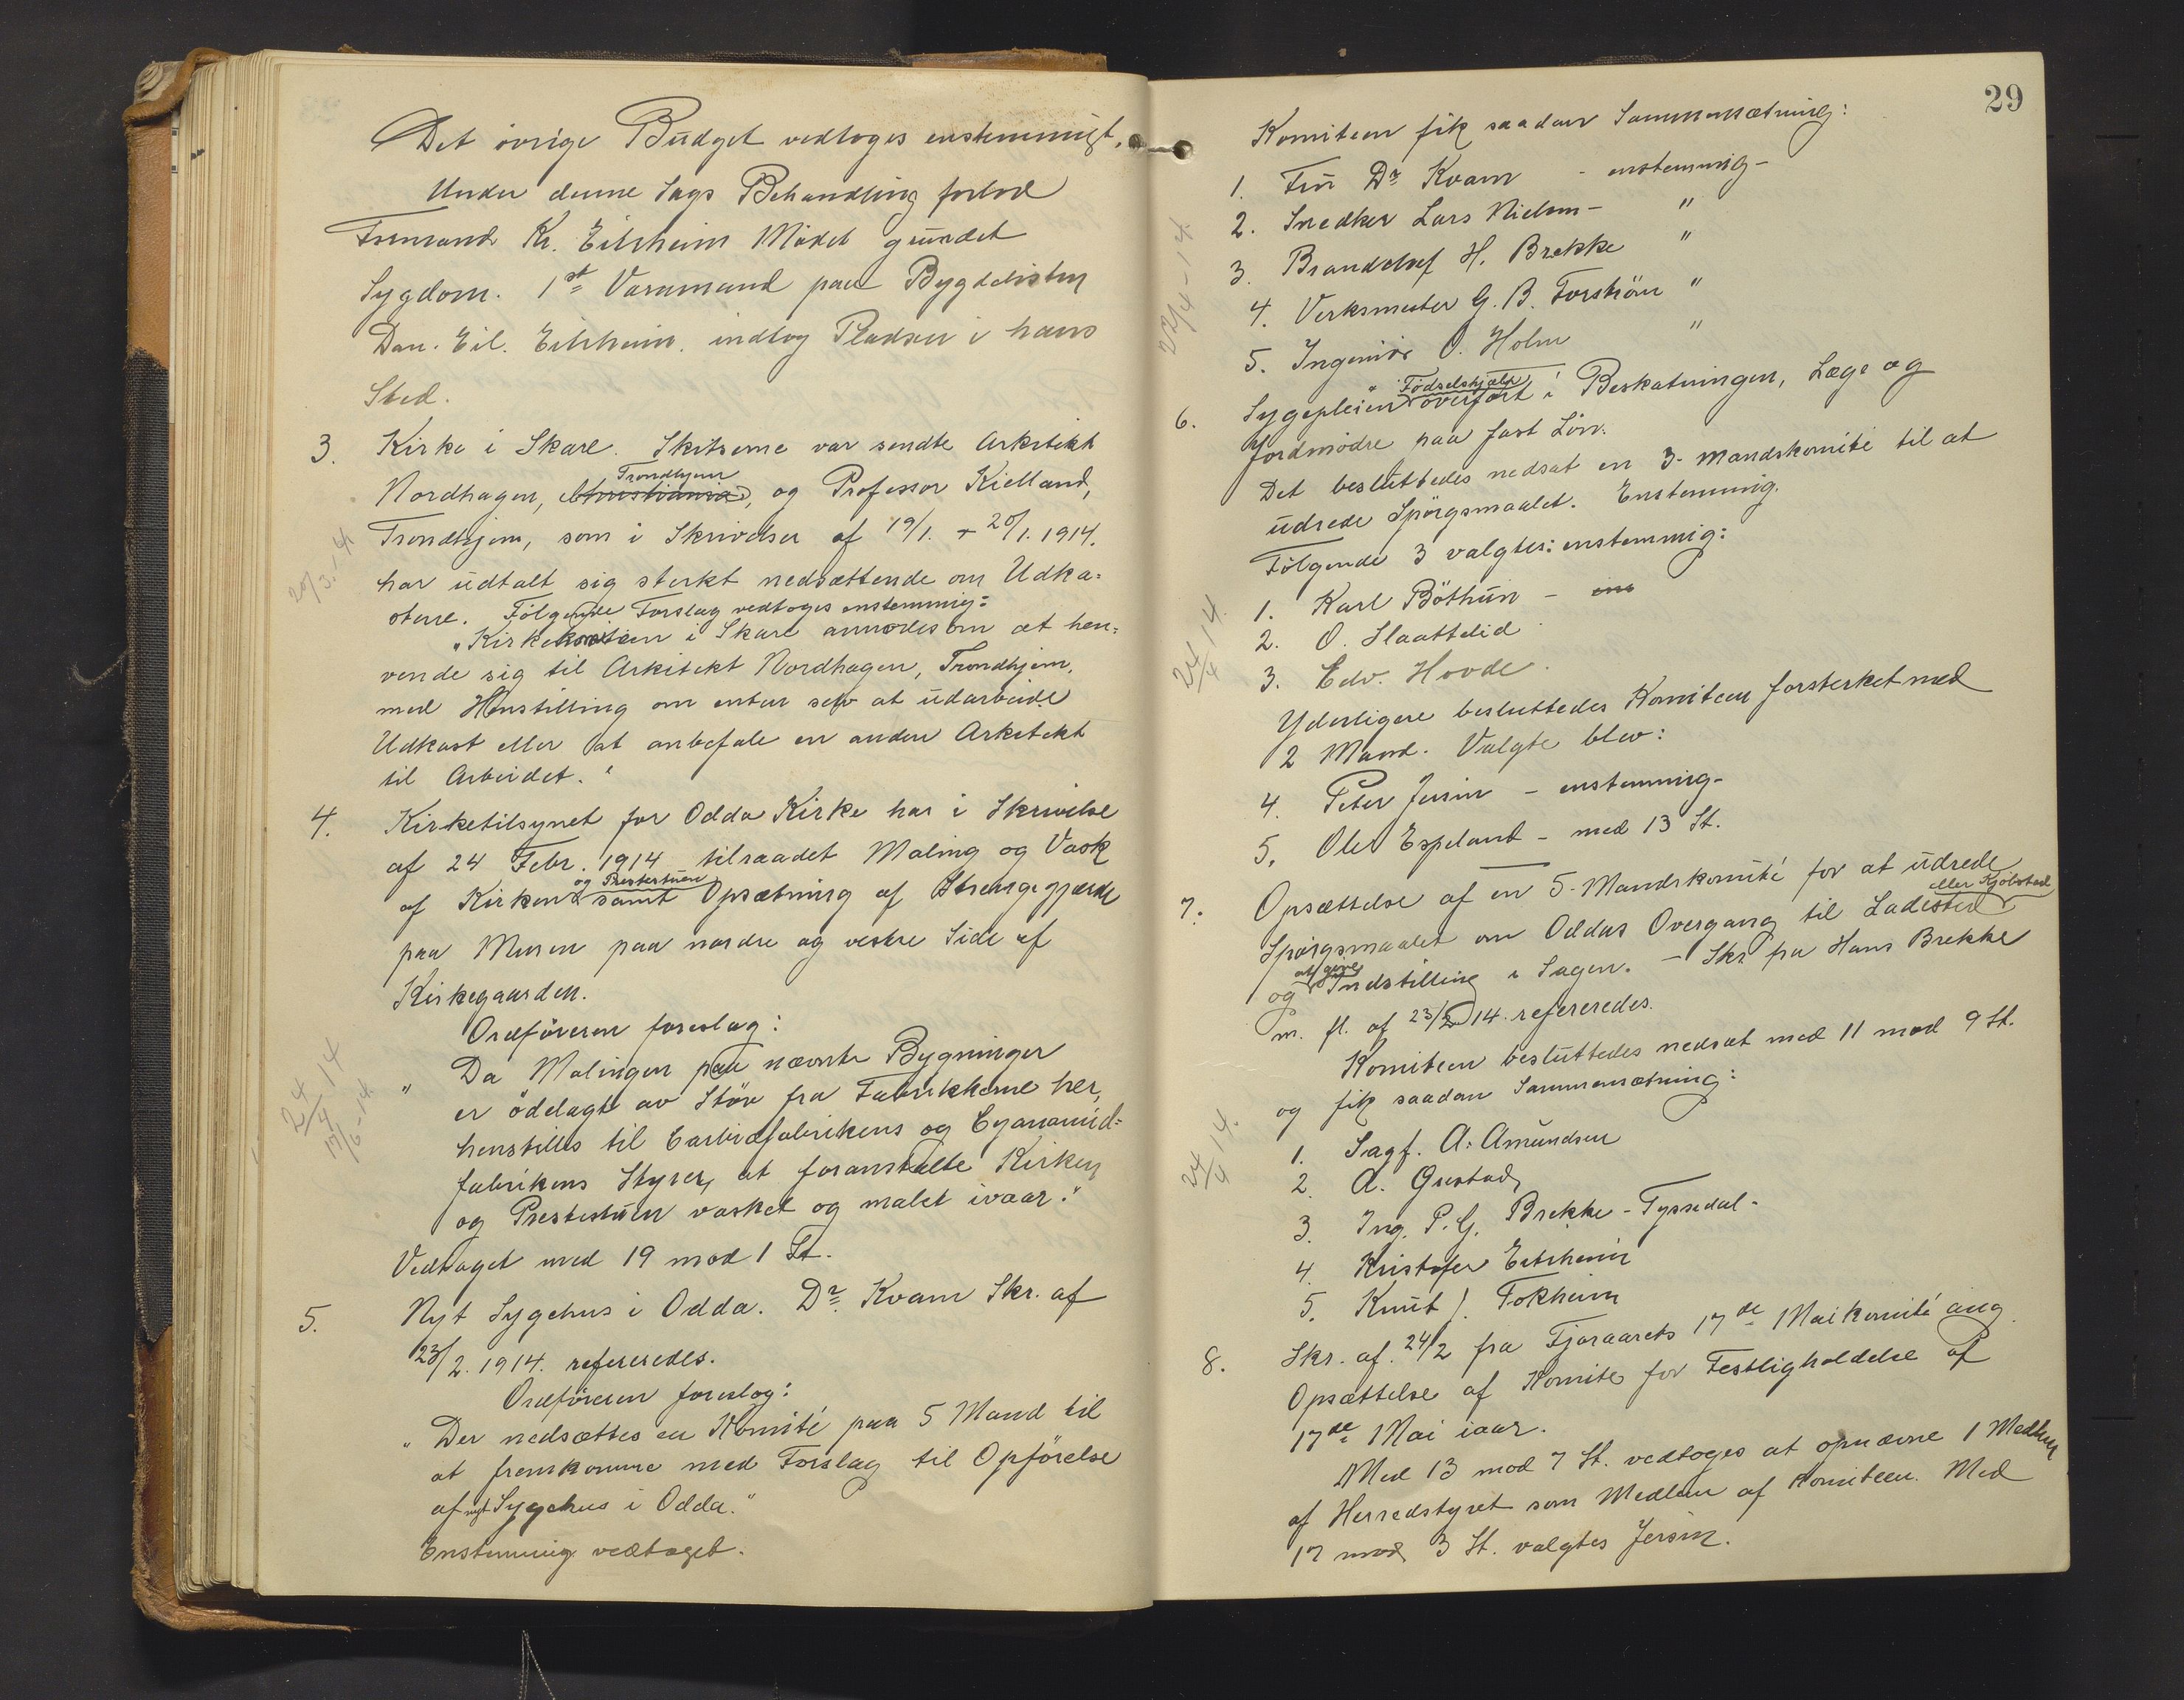 Det övrige Budget vedtoges enstemmigt.
Under denne Sags Behandling forlod
Formand Kr. Eitrheim Mödet grundet
Sygdom. 1st Varamand paa Bygdelisten
Dan. Eil. Eitrheim indtog Pladsen i hans
Sted.
3. Kirke i Skare. Skitserne var sendte Arkitekt
Trondhjem
Nordhagen, Christiania, og Professor Kielland,
Trondhjem, som i Skrivelser af 19/1. + 20/1. 1914.
20/3.14
har udtalt sig sterkt nedsættende om Udka-
stene. Fölgende Forslag vedtoges enstemmig:
"Kirkekomiteen i Skare anmodes om at hen-
vende sig til Arkitekt Nordhagen, Trondhjem,
med Henstilling om enten selv at udarbeide
Udkast eller at anbefale en anden Arkitekt
til Arbeidet."
4. Kirketilsynet for Odda Kirke har i Skrivelse
af 24 Febr. 1914 tilraadet Maling og Vask
og Prestestuen
af Kirken samt Opsætning af Strenggjærde
paa Muren paa nordre og vestre Side af
Kirkegaarden.
Ordföreren foreslog:
24/4 14
17/6-14
" Da Malingen paa nævnte Bygninger
er ödelagt av Stöv fra Fabrikkerne her,
henstilles til Carbidfabrikens og Cyanamid-
fabrikens Styrer, at foranstalte Kirken
og Prestestuen vasket og malet ivaar."
Vedtaget med 19 mod 1 St.
5. Nyt Sygehus i Odda. Dr. Kvam Skr. af
23/2. 1914. refereredes.
Ordföreren foreslog:
" Der nedsættes en Komité paa 5 Mand til
at fremkomme med Forslag til Opförelse
af nyt Sygehus i Odda."
Enstemmig vedtaget.
29
Komiteen fik saadan Sammensætning:
1. Fru Dr. Kvam - enstemmig -
2. Snedker Lars Nielsen - "
3. Brandchef H. Brekke "
22/4-14.
4. Verksmester G. B. Forström "
5. Ingeniör O. Holm "
Födselshjælp
6. Sygepleien overfört i Beskatningen, Læge og
Jordmödre paa fast Lön.
Det besluttedes nedsat en 3-mandskomité til at
udrede Spörgsmaalet. Enstemmig.
Fölgende 3 valgtes: enstemmig:
1. Karl Böthun - ens
24/4 14.
2. O. Slaattelid
3. Edv. Hovde.
Yderligere besluttedes Komiteen forsterket med
2 Mand. Valgte blev:
4. Peter Jersin - enstemmig -
5. Olav Espeland - med 13 St.
7. Opsættelse af en 5-Mandskomité for at udrede
eller Kjöbstad
Spörgsmaalet om Oddas Overgang til Ladested
at give
og Indstilling i Sagen. - Skr. fra Hans Brekke
m. fl. af 23/2 14. refereredes.
Komiteen besluttedes nedsat med 11 mod 9 St.
og fik saadan Sammensætning:
24/4 14.
1. Sagf. A. Amundsen
2. A. Grestad,
3. Ing. P. G. Brekke - Tyssedal -
4. Kristofer Eitrheim
5. Knut J. Tokheim
8. Skr. af 24/2 fra Fjoraarets 17de Maikomité ang.
Opsættelse af Komite for Festligholdelse af
17de Mai iaar.
Med 13 mod 7 St. vedtoges at opnævne 1 Medlem
af Herredstyret som Medlem af Komiteen. Med
17 mod 3 St. valgtes Jersin.